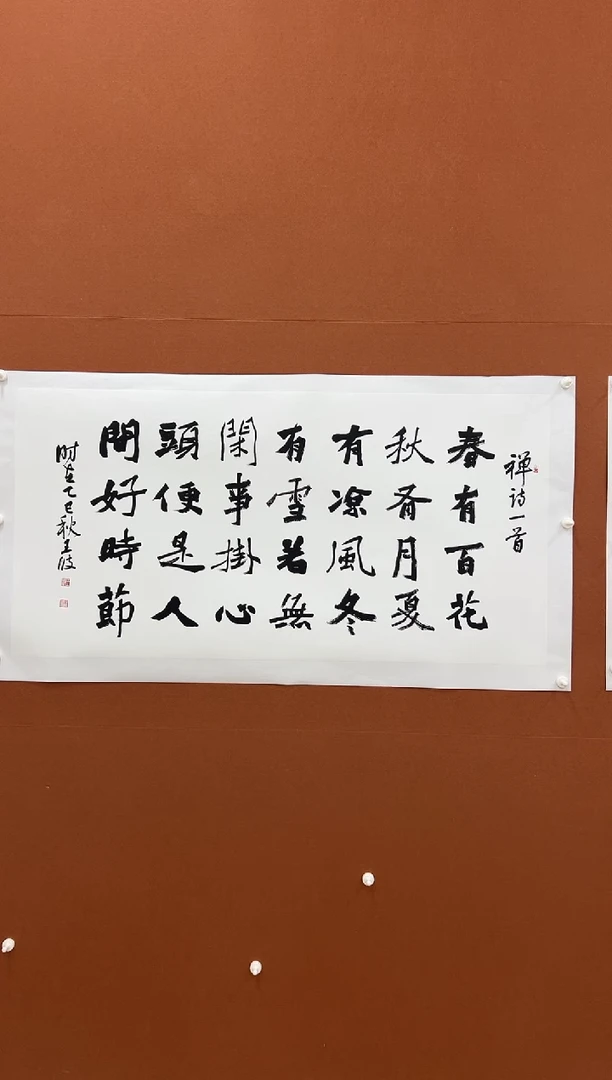 禅诗一首
春有百花
秋有月夏
有凉風冬
有雪若無
閑事掛心
頭便是人
間好時節
时在乙巳秋王波